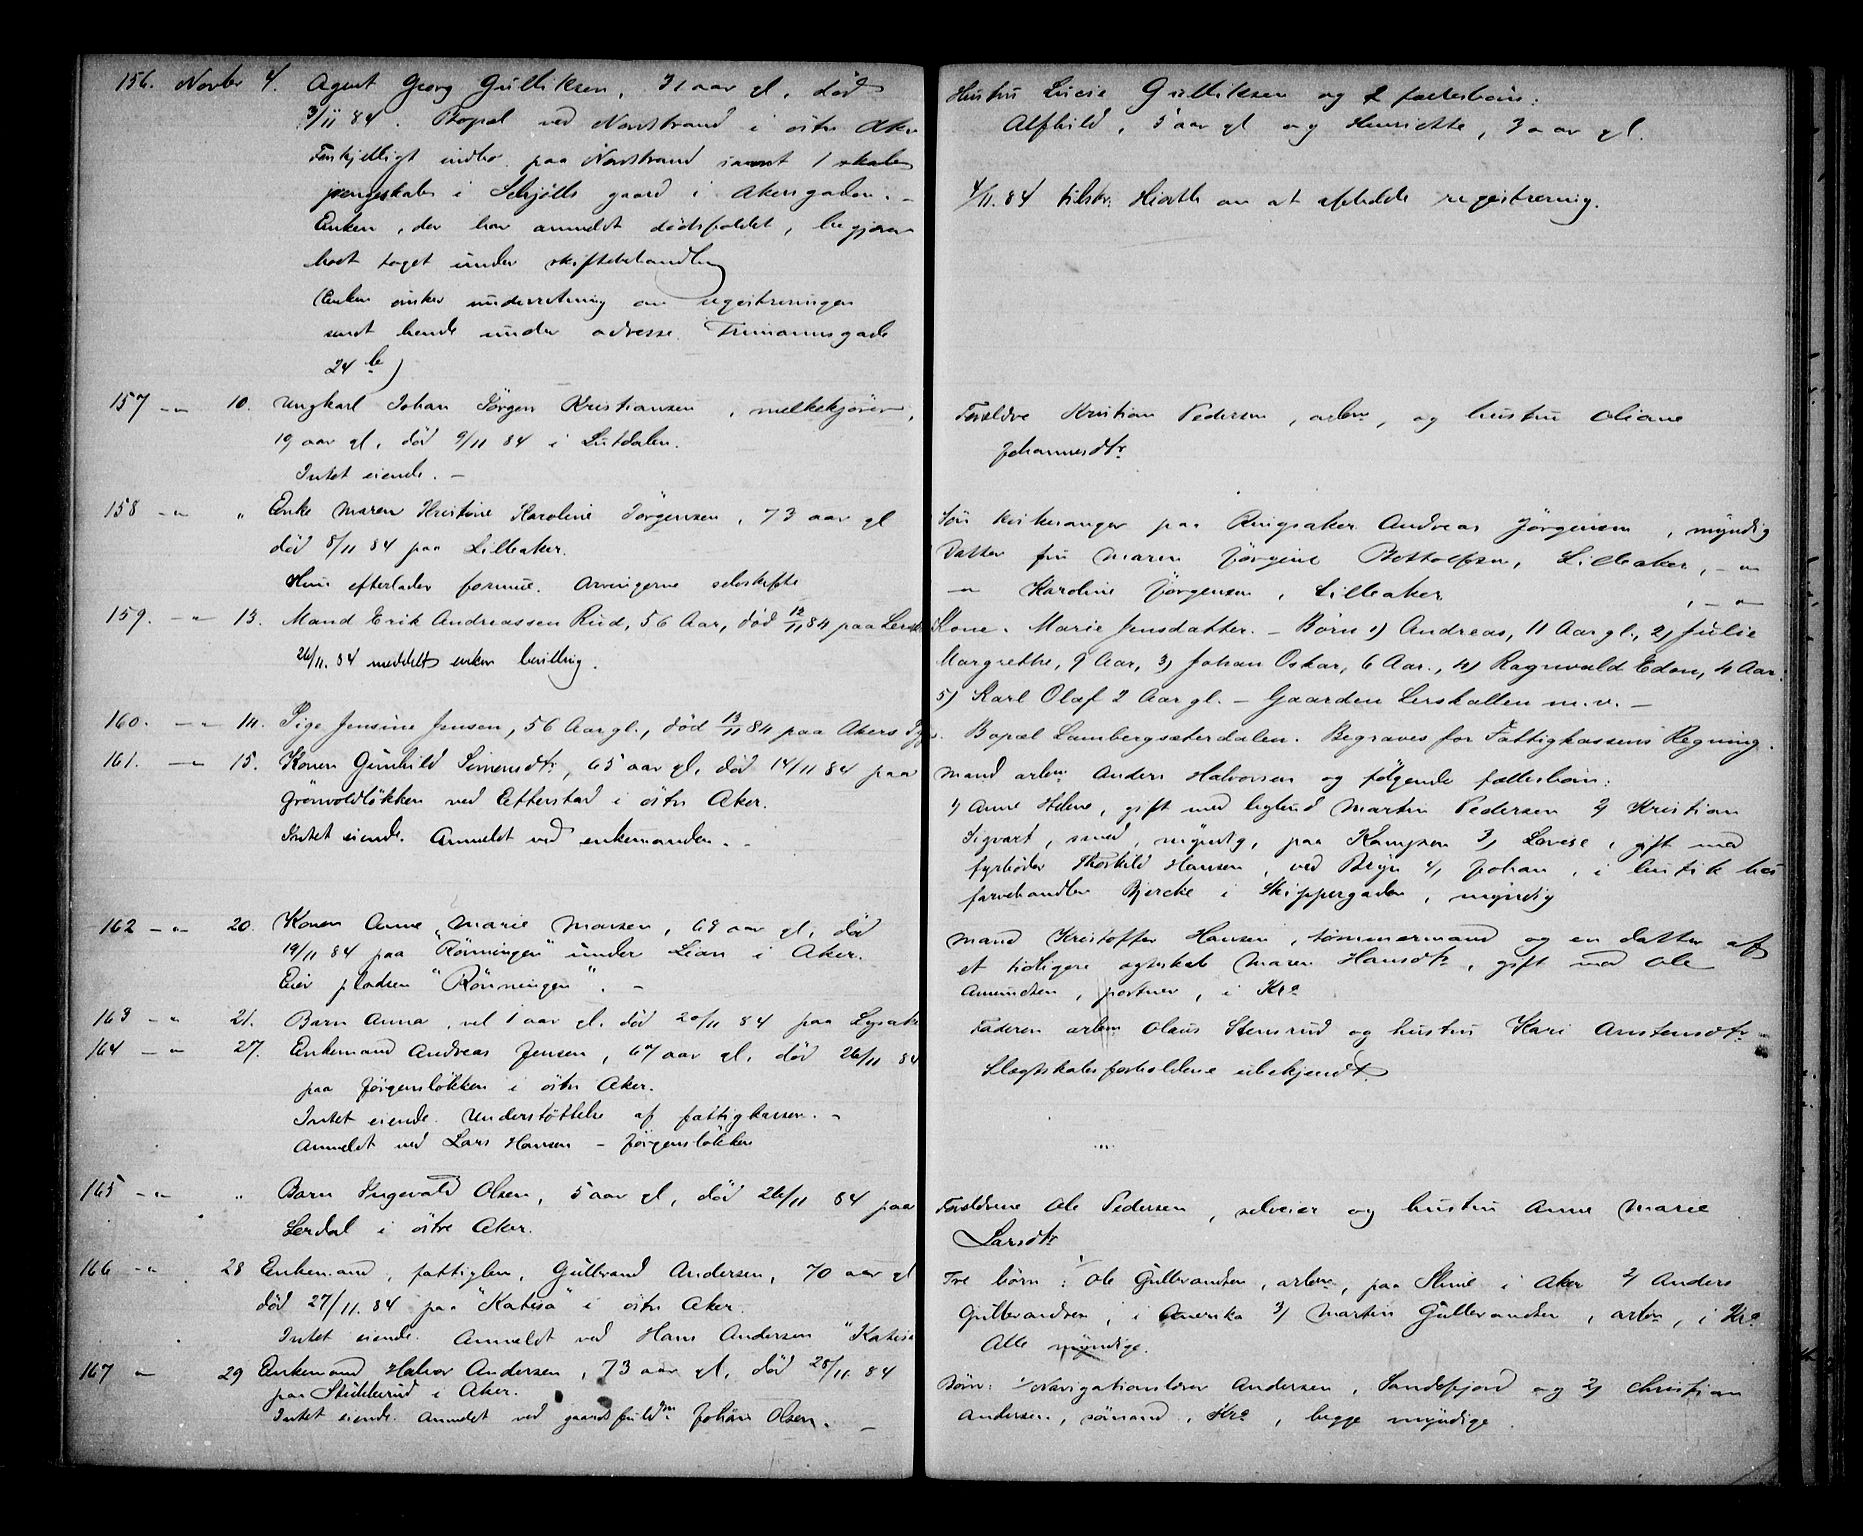 156. Novbr 4. Agent Georg Gulliksen, 31 aar gl. død
3/11 84. Bopæl ved Nordstrand i östre Aker
Forskjelligt indbo paa Nordstrand samt 1
pengeskab i Schjølls gaard i Akersgaden. -
Enken, der har anmeldt dödsfaldet, begjærer
boet taget under skiftebehandling
(Enken önsker underretning om registreringen
sendt hende under adresse
24 b)
Hustru Lucie Gulliksen og 2 fællesbörn:
Alfhild, 5 aar gl og Henriette, 3 aar gl.
4/11. 84 tilskr. Hiorth om at afholde registrering.
157 -"- 10. Ungkarl Johan Jörgen Kristiansen, melkekjörer,
19 aar gl, död 9/11 84 i Lutdalen.
Intet eiende. -
Forældre Kristian Pedersen, arbm, og hustru Oliane
Johannesdtr
158 -"- " Enke Maren Kristine Karoline Jörgensen, 73 aar gl
död 8/11 84 paa Lilleaker.
Hun efterlader formue. Arvingerne selvskifte
Sön kirkesanger paa Ringsaker Andreas Jörgensen, myndig
Datter fru Maren Jörgine Bottolfsen, Lilleaker, -"-
-"- Karoline Jörgensen, Lilleaker, -"-
159. -"- 13. Mand Erik Andreassen Rud, 56 Aar, död 12/11 84 paa
26/11. 84 meddelt enken bevilling.
Kone. Marie Jensdatter. - Børn 1) Andreas, 11 Aar gl., 2) Julie
Margrethe, 9 Aar, 3) Johan Oskar, 6 Aar., 4) Ragnvald Edon, 4 Aar.
5) Karl Olaf 2 Aar gl. - Gaarden Lerskallen m.v. -
160. -"- 14. Pige Jensine Jensen, 56 Aar gl., død 13/11 84 paa Akers
Bopæl Lambergsæterdalen. Begraves for Fattigkassens Regning.
161. -"- 15. Konen Gunhild Simensdtr, 65 aar gl, död 14/11 84 paa
Grönvoldlökken ved Etterstad i östre Aker.
Intet eiende. Anmeldt ved enkemanden. -
Mand arbm Anders Halvorsen og følgende fællesbörn:
1) Anne Helene, gift med Martin Pedersen 2) Kristian
Sigvart, smed, myndig, paa Kampen 3) Lovise, gift med
fyrböder Thorkild Hansen, ved Bryn 4) Johan, i butik hos
farvehandler Bjercke i Skippergaden, myndig
162 -"- 20. Konen Anne Marie Monsen, 69 aar gl, död
19/11 84 paa "Rönningen" under Lian i Aker.
Eier pladsen "Rönningen". -
Mand Kristoffer Hansen, tömmermand og en datter af
et tidligere ægteskab Maren Hansdtr, gift med Ole
Amundsen, portner, i Kra
163 -"- 21. Barn Anna, vel 1 aar gl. död 20/11 84 paa Lysaker
Faderen arbm Olaus Stensrud og hustru Kari Anstensdtr
164 -"- 27. Enkemand Andreas Jensen, 67 aar gl. död 26/11 84
paa Jörgenslökken i östre Aker.
Intet eiende. Understöttelse af fattigkassen. -
Anmeldt ved Lars Hansen - Jörgenslökken
Slægtskabsforholdene ubekjendt.
165 -"- " Barn Ingevald Olsen, 5 aar gl, död 26/11 84 paa
Lerdal i östre Aker.
Forældrene Ole Pedersen, selveier og hustru Anne Marie
Larsdtr
166 -"- 28 Enkemand, fattiglem, Gulbrand Andersen, 70 aar gl
död 27/11. 84 paa "Katisa" i östre Aker.
Intet eiende. Anmeldt ved Hans Andersen "Katisa
Tre börn: 1/ Ole Gulbrandsen, arbm, paa i Aker 2/ Anders
Gulbrandsen, i Amerika 3/ Martin Gulbrandsen, arbm, i Kra
Alle myndige.
167 -"- 29 Enkemand Halvor Andersen, 73 aar gl, död 28/11. 84
paa Stubberud i Aker.
Intet eiende. Anmeldt ved gaardsfuldm Johan Olsen. -
Börn: 1/ Navigationslærer Andersen, Sandefjord og 2/ Christian
Andersen, sömand, Kra, begge myndige